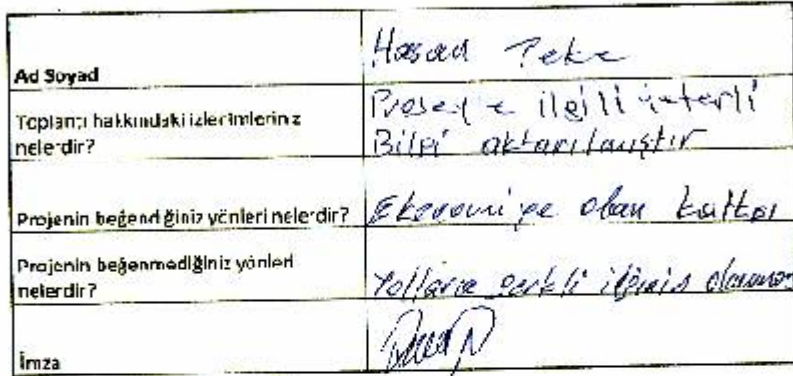 Ad Soyad
Hasan Teke
Toplantı hakkındaki izlenimleriniz
nelerdir?
ilgili yeterli
Bilgi aktarılmıştır
Projenin beğendiğiniz yönleri nelerdir?
Ekonomiye olan katkısı
Projenin beğenmediğiniz yönleri
nelerdir?
Yolların
İmza